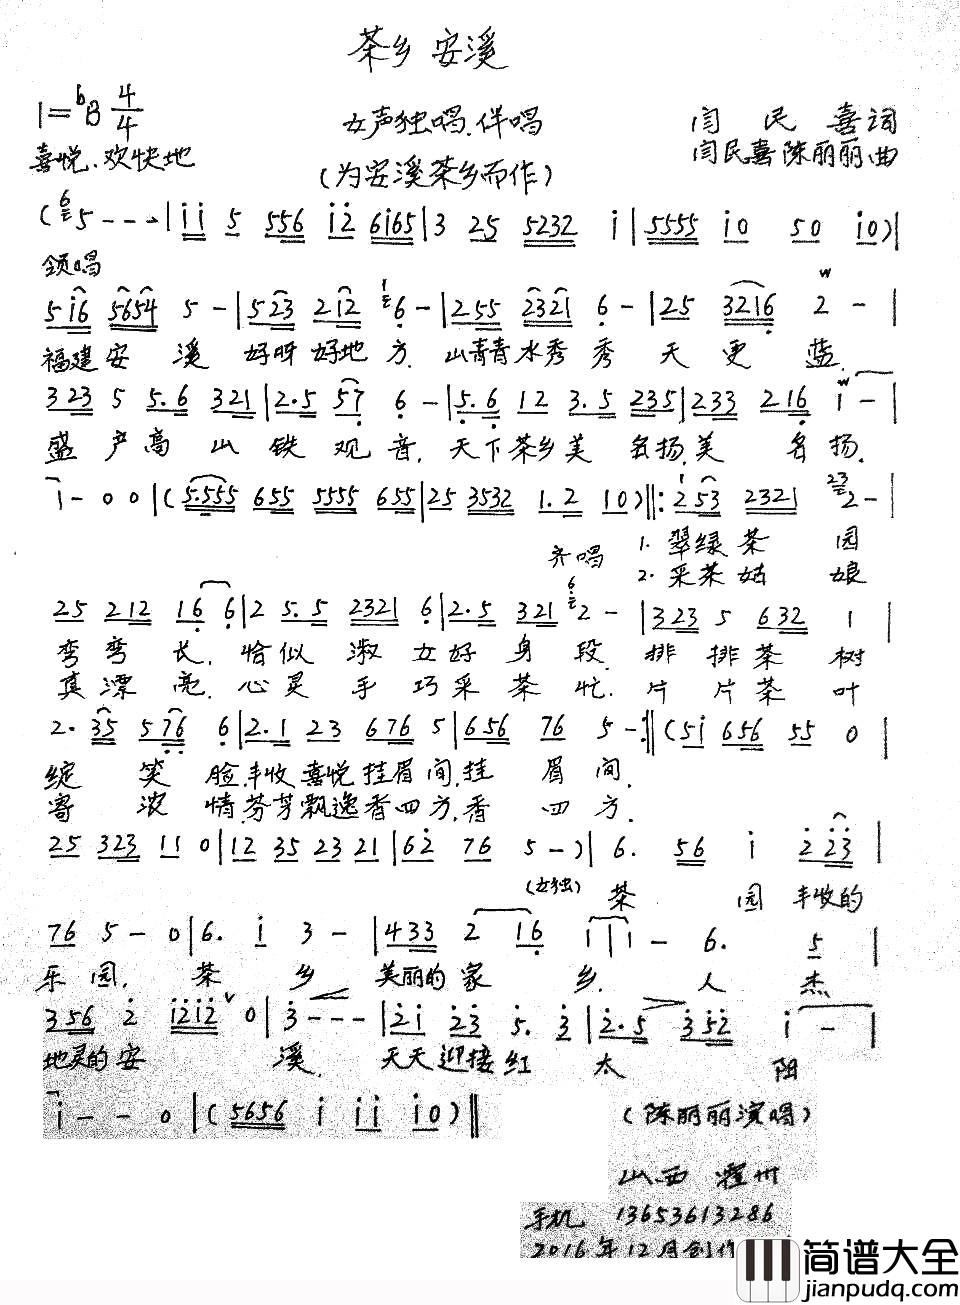 茶乡 安溪
1=bB 4/4
女声独唱.伴唱
闫民喜词
喜悦.欢快地
(为安溪茶乡而作)
闫民喜 陈丽丽曲
(5 - - - | i i 5 556 i2 6i65 | 3 25 5232 i | 5555 i0 50 i0) |
领唱
5i6 5654 5 - | 523 212 6 - | 255 2321 6 - | 25 3216 2 - |
福建安溪 好呀好地方. 山青青水秀秀 天更蓝.
323 5 5.6 321 | 2.5 57 6 - | 5.6 12 3.5 235 | 233 216 i - |
盛产高山铁观音. 天下茶乡美名扬.美名扬.
i - 0 0 | (5.555 655 5555 655 | 25 3532 1.2 10) ‖: 253 2321 2 - |
1. 翠绿茶园
齐唱
2. 采茶姑娘
25 212 16 6 | 2 5.5 2321 6 | 2.5 321 2 - | 323 5 632 1 |
弯弯长. 恰似淑女好身段. 排排茶树
真漂亮. 心灵手巧采茶忙. 片片茶叶
2. 35 576 6 | 2.1 23 676 5 | 656 76 5 - :‖ (5i 656 55 0 |
绽笑脸.丰收喜悦挂眉间.挂眉间.
寄浓情.芬芳飘逸香四方.香四方.
25 323 11 0 | 12 35 23 21 | 62 76 5 -) | 6. 56 i 223 |
(女独) 茶园丰收的
76 5 - 0 | 6. i 3 - | 433 2 16 | 1 1 1 - 6. 5 |
乐园. 茶乡 美丽的家乡. 人杰
356 2 i2i2 0 | 3 - - - | 2i 23 5. 3 | 2.5 352 i - |
地灵的安溪. 天天迎接红太阳
i - - 0 | (5656 i ii i0) ‖
(陈丽丽演唱)
山西 霍州
手机 13653613286
2016年12月创作
简谱大全
jianpudq.com